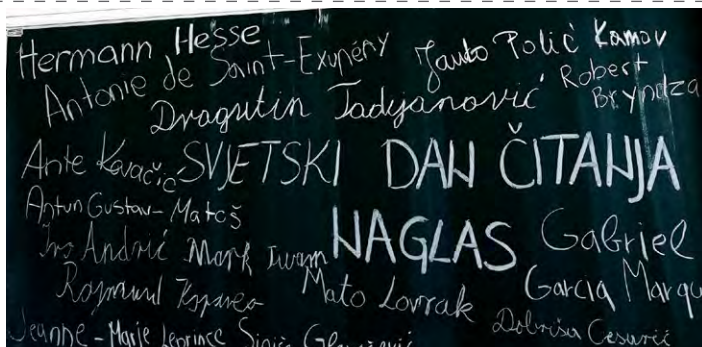 Hermann Hesse
Antonie de Saint-Exupéry
Janko Polić Kamov
Robert Bryndza
Dragutin Tadijanović
Ante Kovačić
SVJETSKI DAN ČITANJA
NAGLAS
Antun Gustav-Matoš
Ivo Andrić
Mark Twain
Gabriel
Garcia Marqu
Rajmund Kupareo
Mato Lovrak
Dobriša Cesarić
Jeanne-Marie Leprince
Siniša Glavašević